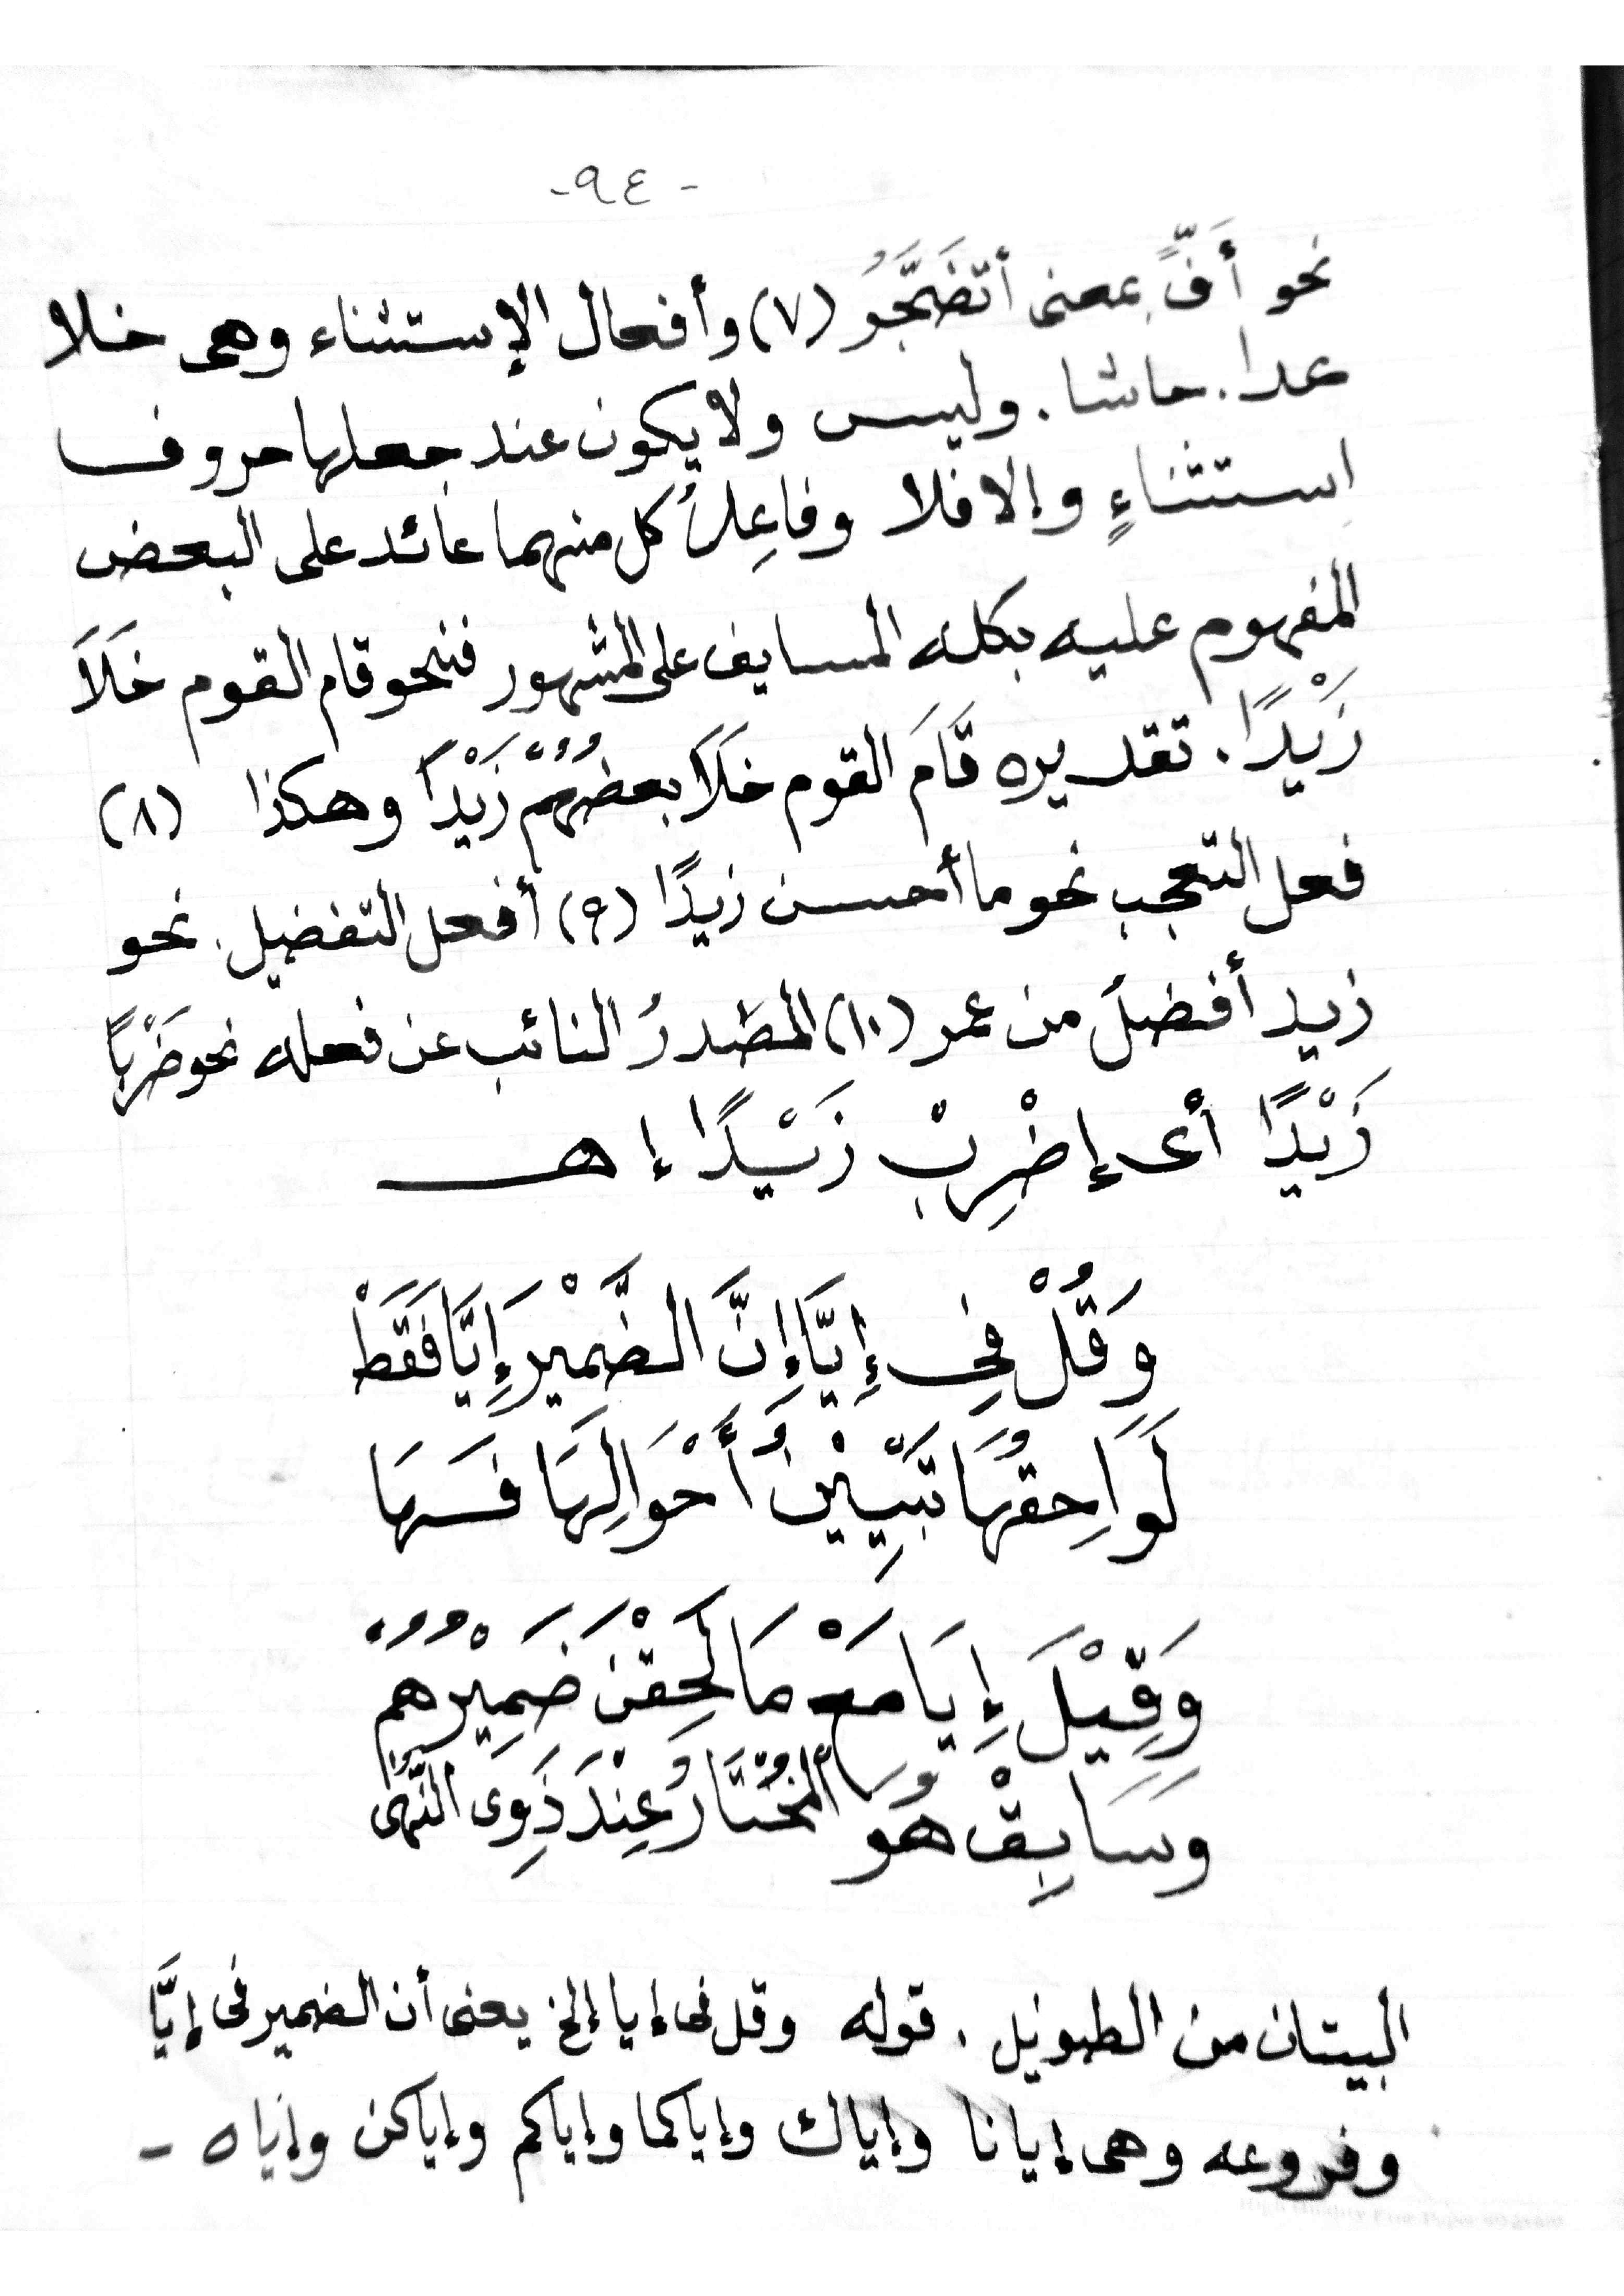 -٩٤-
نحو أَفٍّ بمعنى أتَضَجَّرُ (٧) وأفعال الإستثناء وهى خلا
عدا. حاشا. وليس ولا يكون عند جعلها حروف
استثناءٍ وإلا فلا وفاعِلُ كل منهما عائد على البعض
المفهوم عليه بكله المسايف على المشهور فنحو قام القوم خَلَا
زَيْدًا. تقديره قَامَ القوم خَلَا بعضُهُمْ زَيْدًا وهكذا (٨)
فعل التعجب نحو ما أحسن زيدًا (٩) أفعل التفضيل. نحو
زيد أفضلُ من عمر (١٠) المصْدرُ النائب عن فعله نحو ضَرْبًا
زَيْدًا أى إضْرِبْ زَيْدًا إ هـ
وَقُلْ فِى إِيَّا إِنَّ الضَّمْيرَ إِيَّا فَقَطْ
لَوَاحِقُهَا تَبْيِيْنُ أَحْوَالِهَا فَسَهَا
وَقِيْلَ إِيَا مَعْ مَا لَحِقْنَ ضَمِيْرُهُمُ
وَسَابِقْ هُوَ المُخْتَارُ عِنْدَ ذَوِى النُّهَى
البيتان من الطويل. قوله وقل فى إيا إلخ يعنى أن الضمير فى إيَّا
وفروعه وهى إيانا وإياك وإياكما وإياكم وإياكن وإياه -